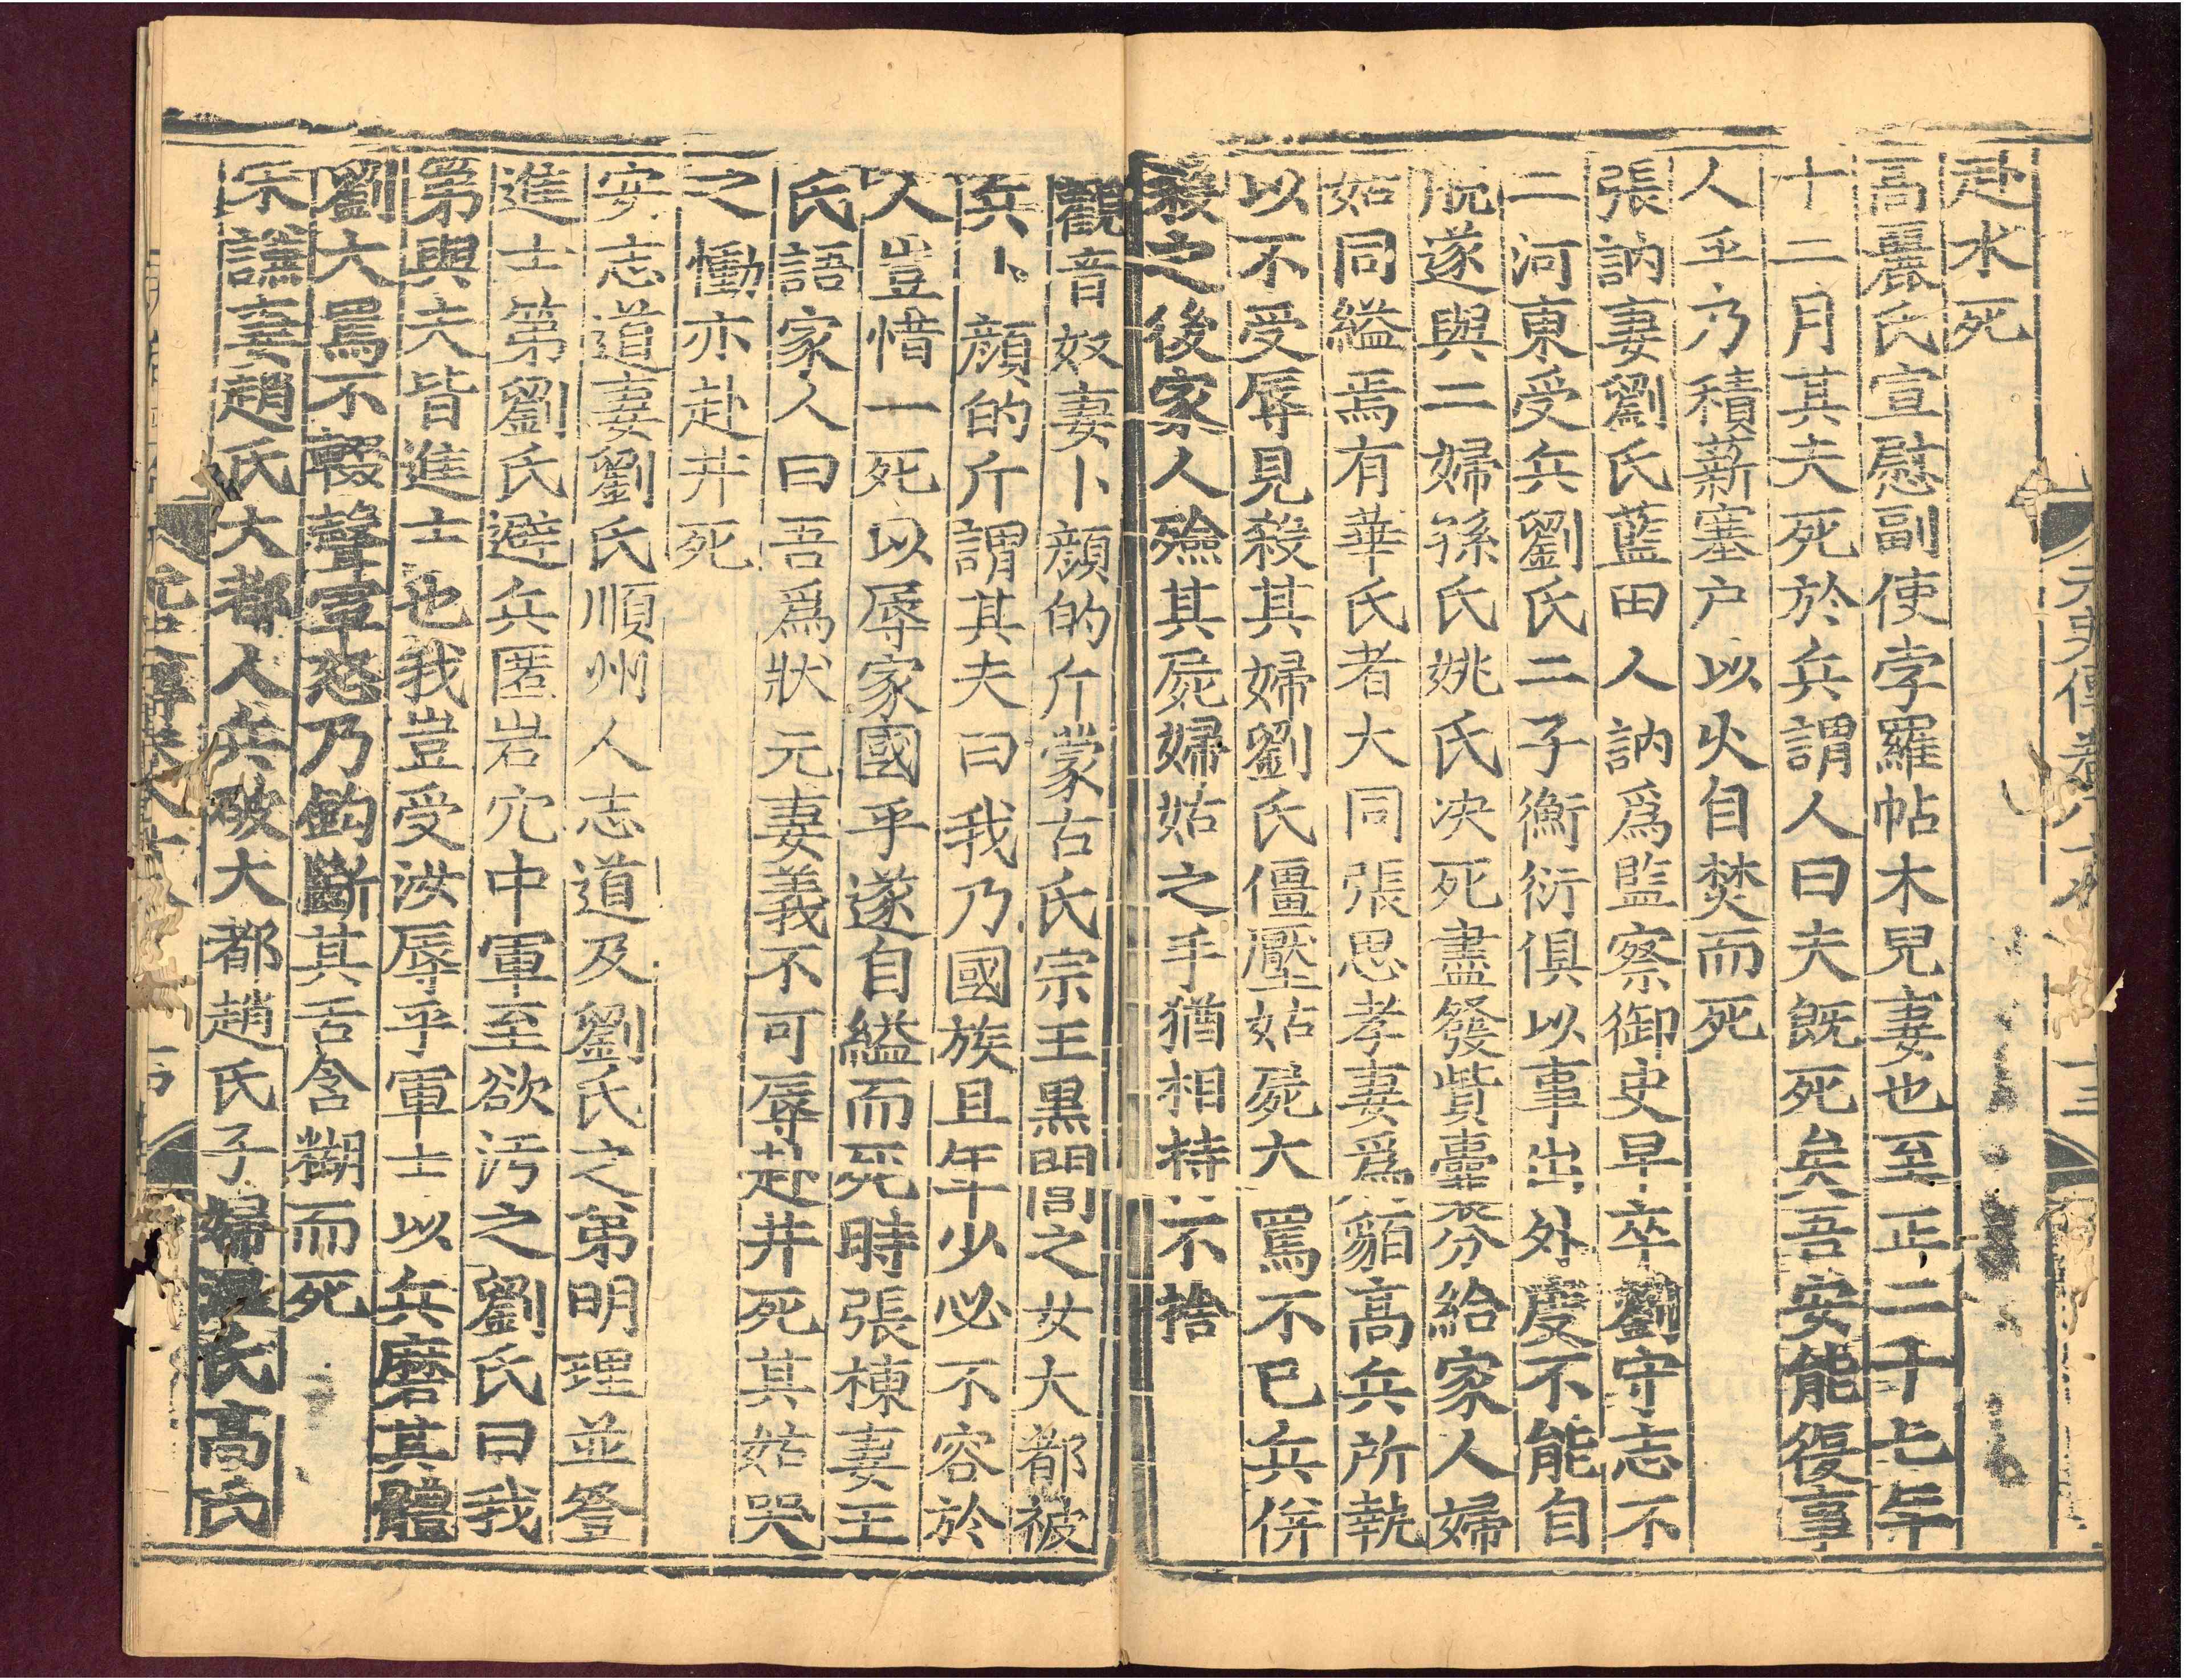 赴水死
高麗氏宣慰副使孛羅帖木兒妻也至正二十七年
十二月其夫死於兵謂人曰夫旣死矣吾安能復事
人乎乃積薪塞户以火自焚而死
張訥妻劉氏藍田人訥爲監察御史早卒劉守志不
二河東受兵劉氏二子衡衍俱以事出外度不能自
脱遂與二婦孫氏姚氏决死盡發貲囊分給家人婦
姑同縊焉有華氏者大同張思孝妻爲貊高兵所執
以不受辱見殺其婦劉氏僵壓姑屍大罵不已兵併
殺之後家人殮其屍婦姑之手猶相持不捨
觀音奴妻卜顔的斤蒙古氏宗王黒閭之女大都被
兵卜顔的斤謂其夫曰我乃國族且年少必不容於
人豈惜一死以辱家國乎遂自縊而死時張棟妻王
氏語家人曰吾爲狀元妻義不可辱赴井死其姑哭
之慟亦赴井死
安志道妻劉氏順州人志道及劉氏之弟明理並登
進士第劉氏避兵匿岩穴中軍至欲汚之劉氏曰我
第與夫皆進士也我豈受汝辱乎軍士以兵磨其體
劉大罵不輟聲壹怒乃鈎斷其舌含糊而死
宋謙妻趙氏大都人兵破大都趙氏子婦温氏高氏
元史傳卷八十
十三